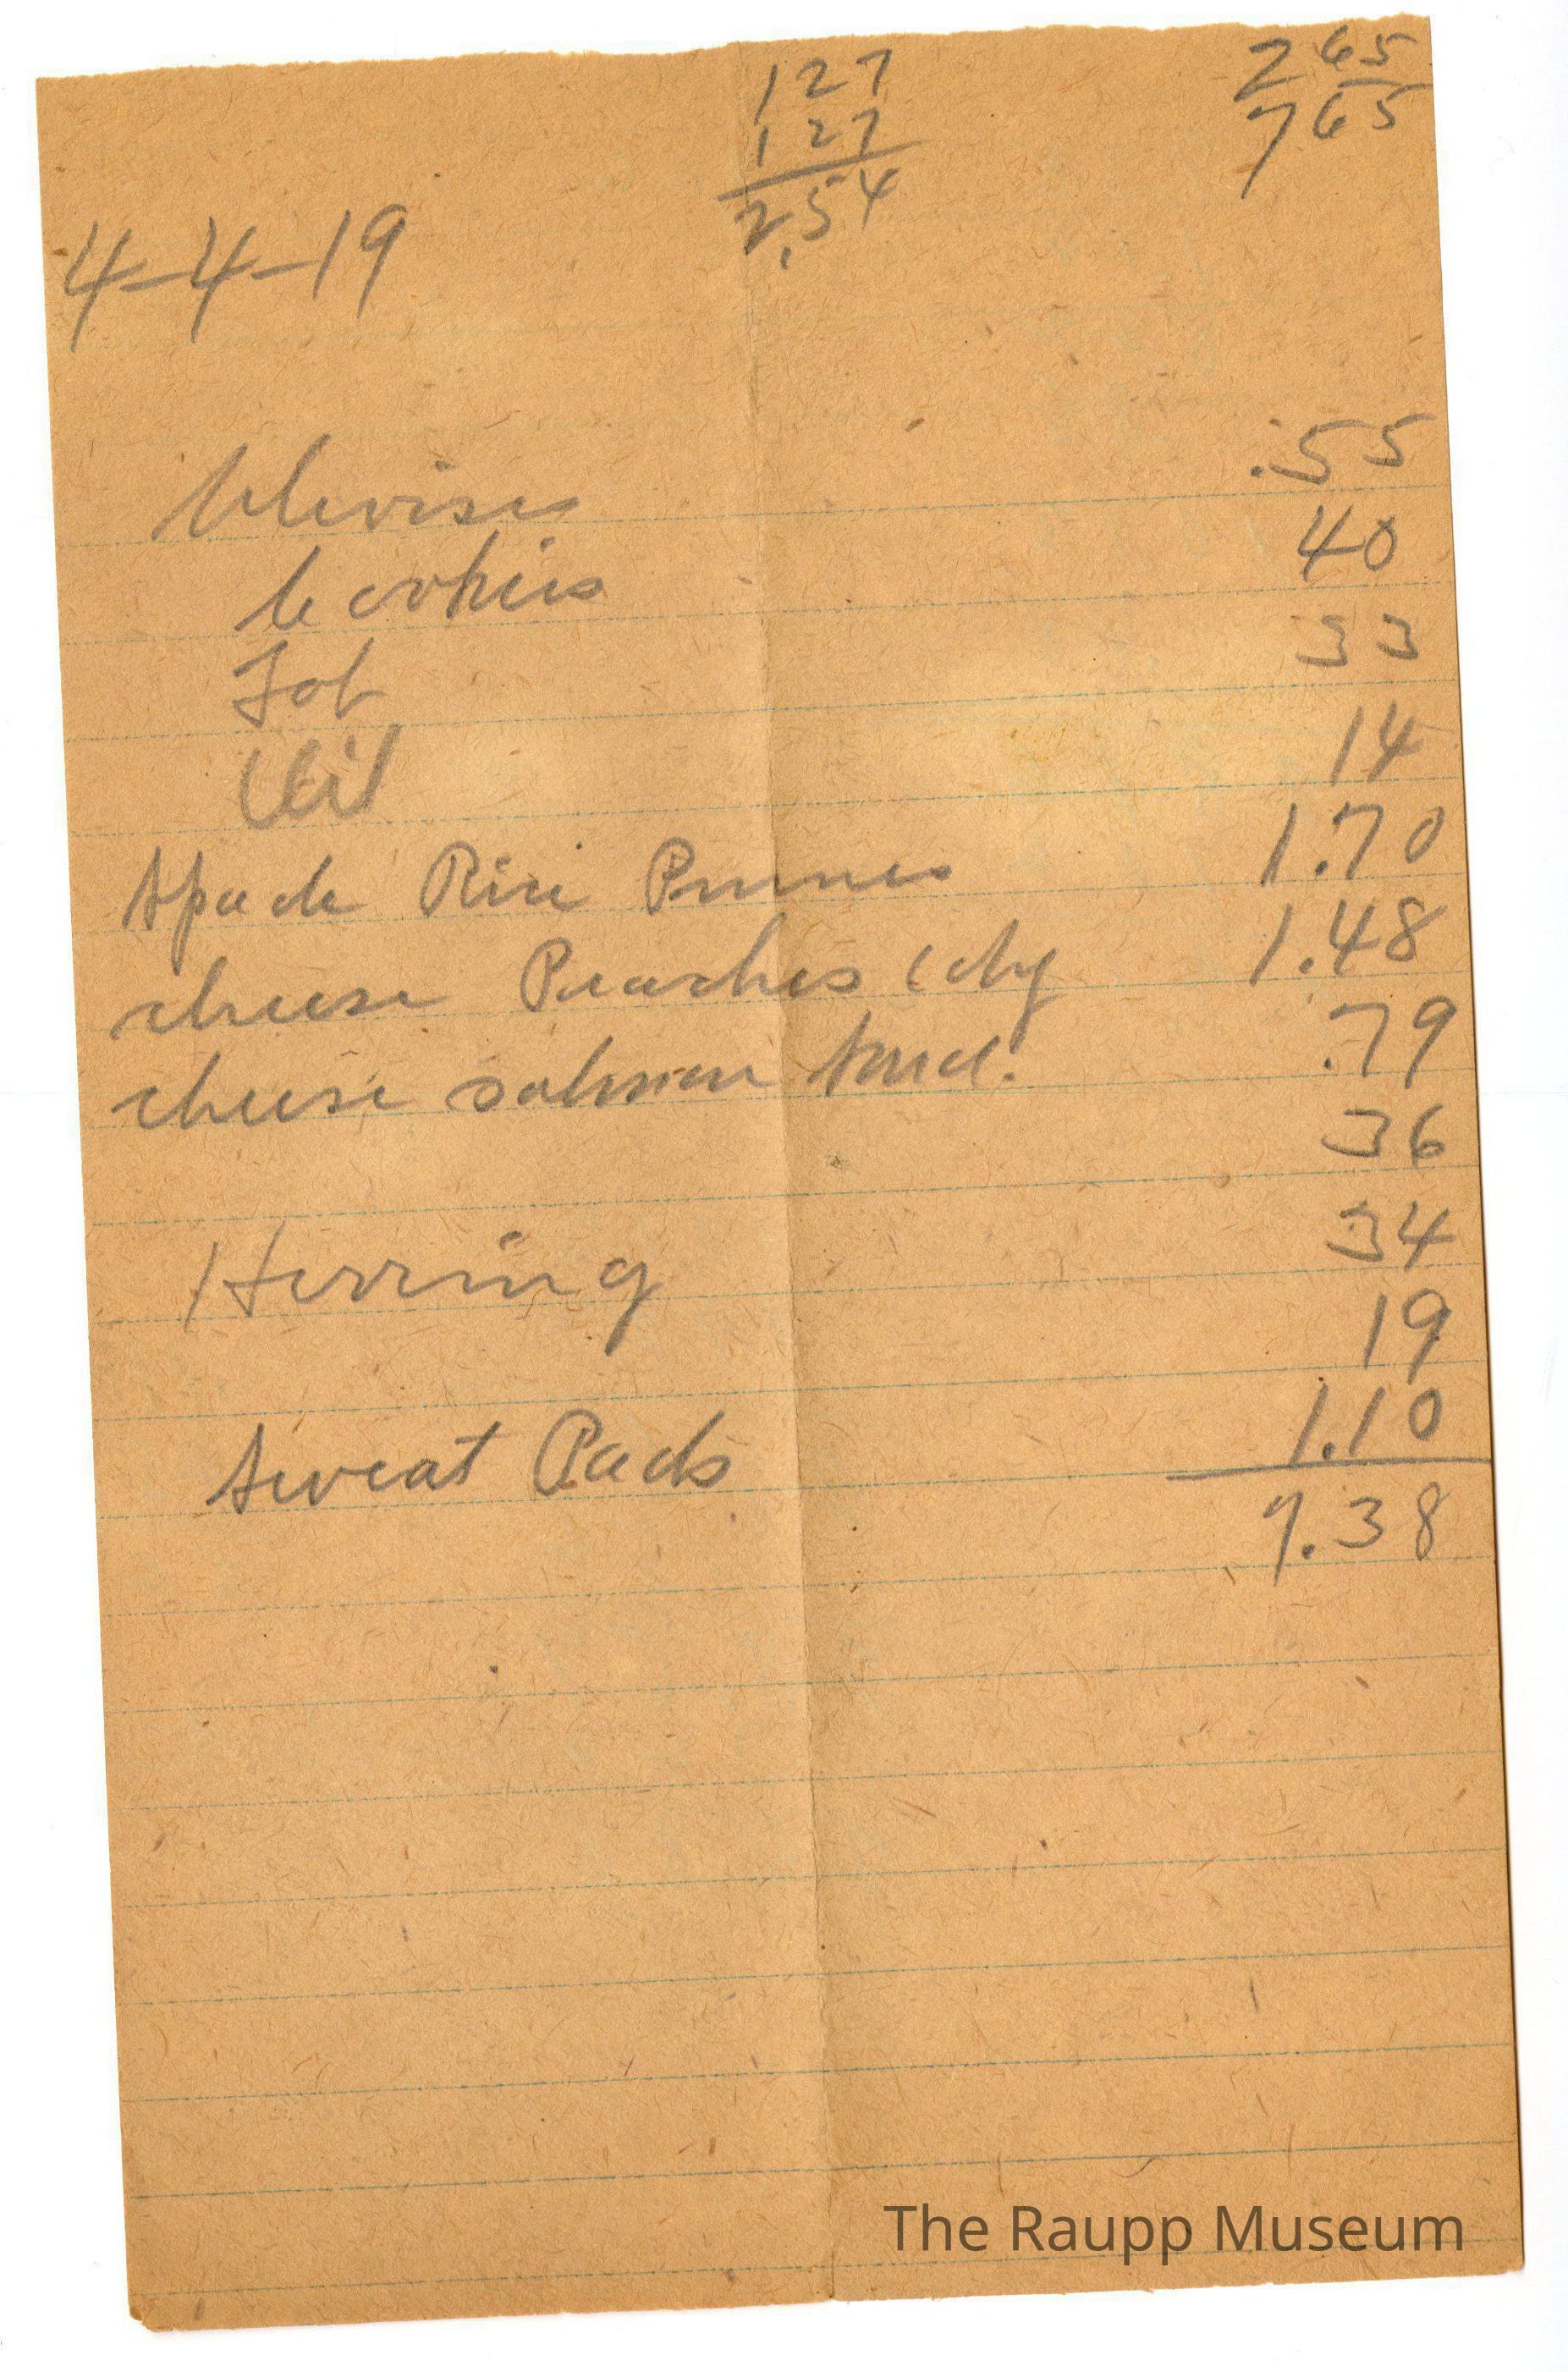 127 2 65
127 7 65
2.54
4-4-19
Clevises .55
Cookies 40
Tob 33
Oil 14
Spade Rice Prunes 1.70
cheese Peaches cdy 1.48
cheese salmon .79
36
Herring 34
19
Sweat Pads 1.10
7.38
The Raupp Museum